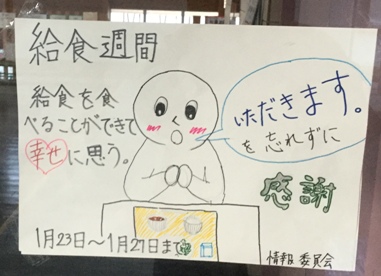 給食週間
給食を食
べることができて
幸せに思う。
いただきます。
を忘れずに
感謝
1月23日～1月27日まで
情報委員会